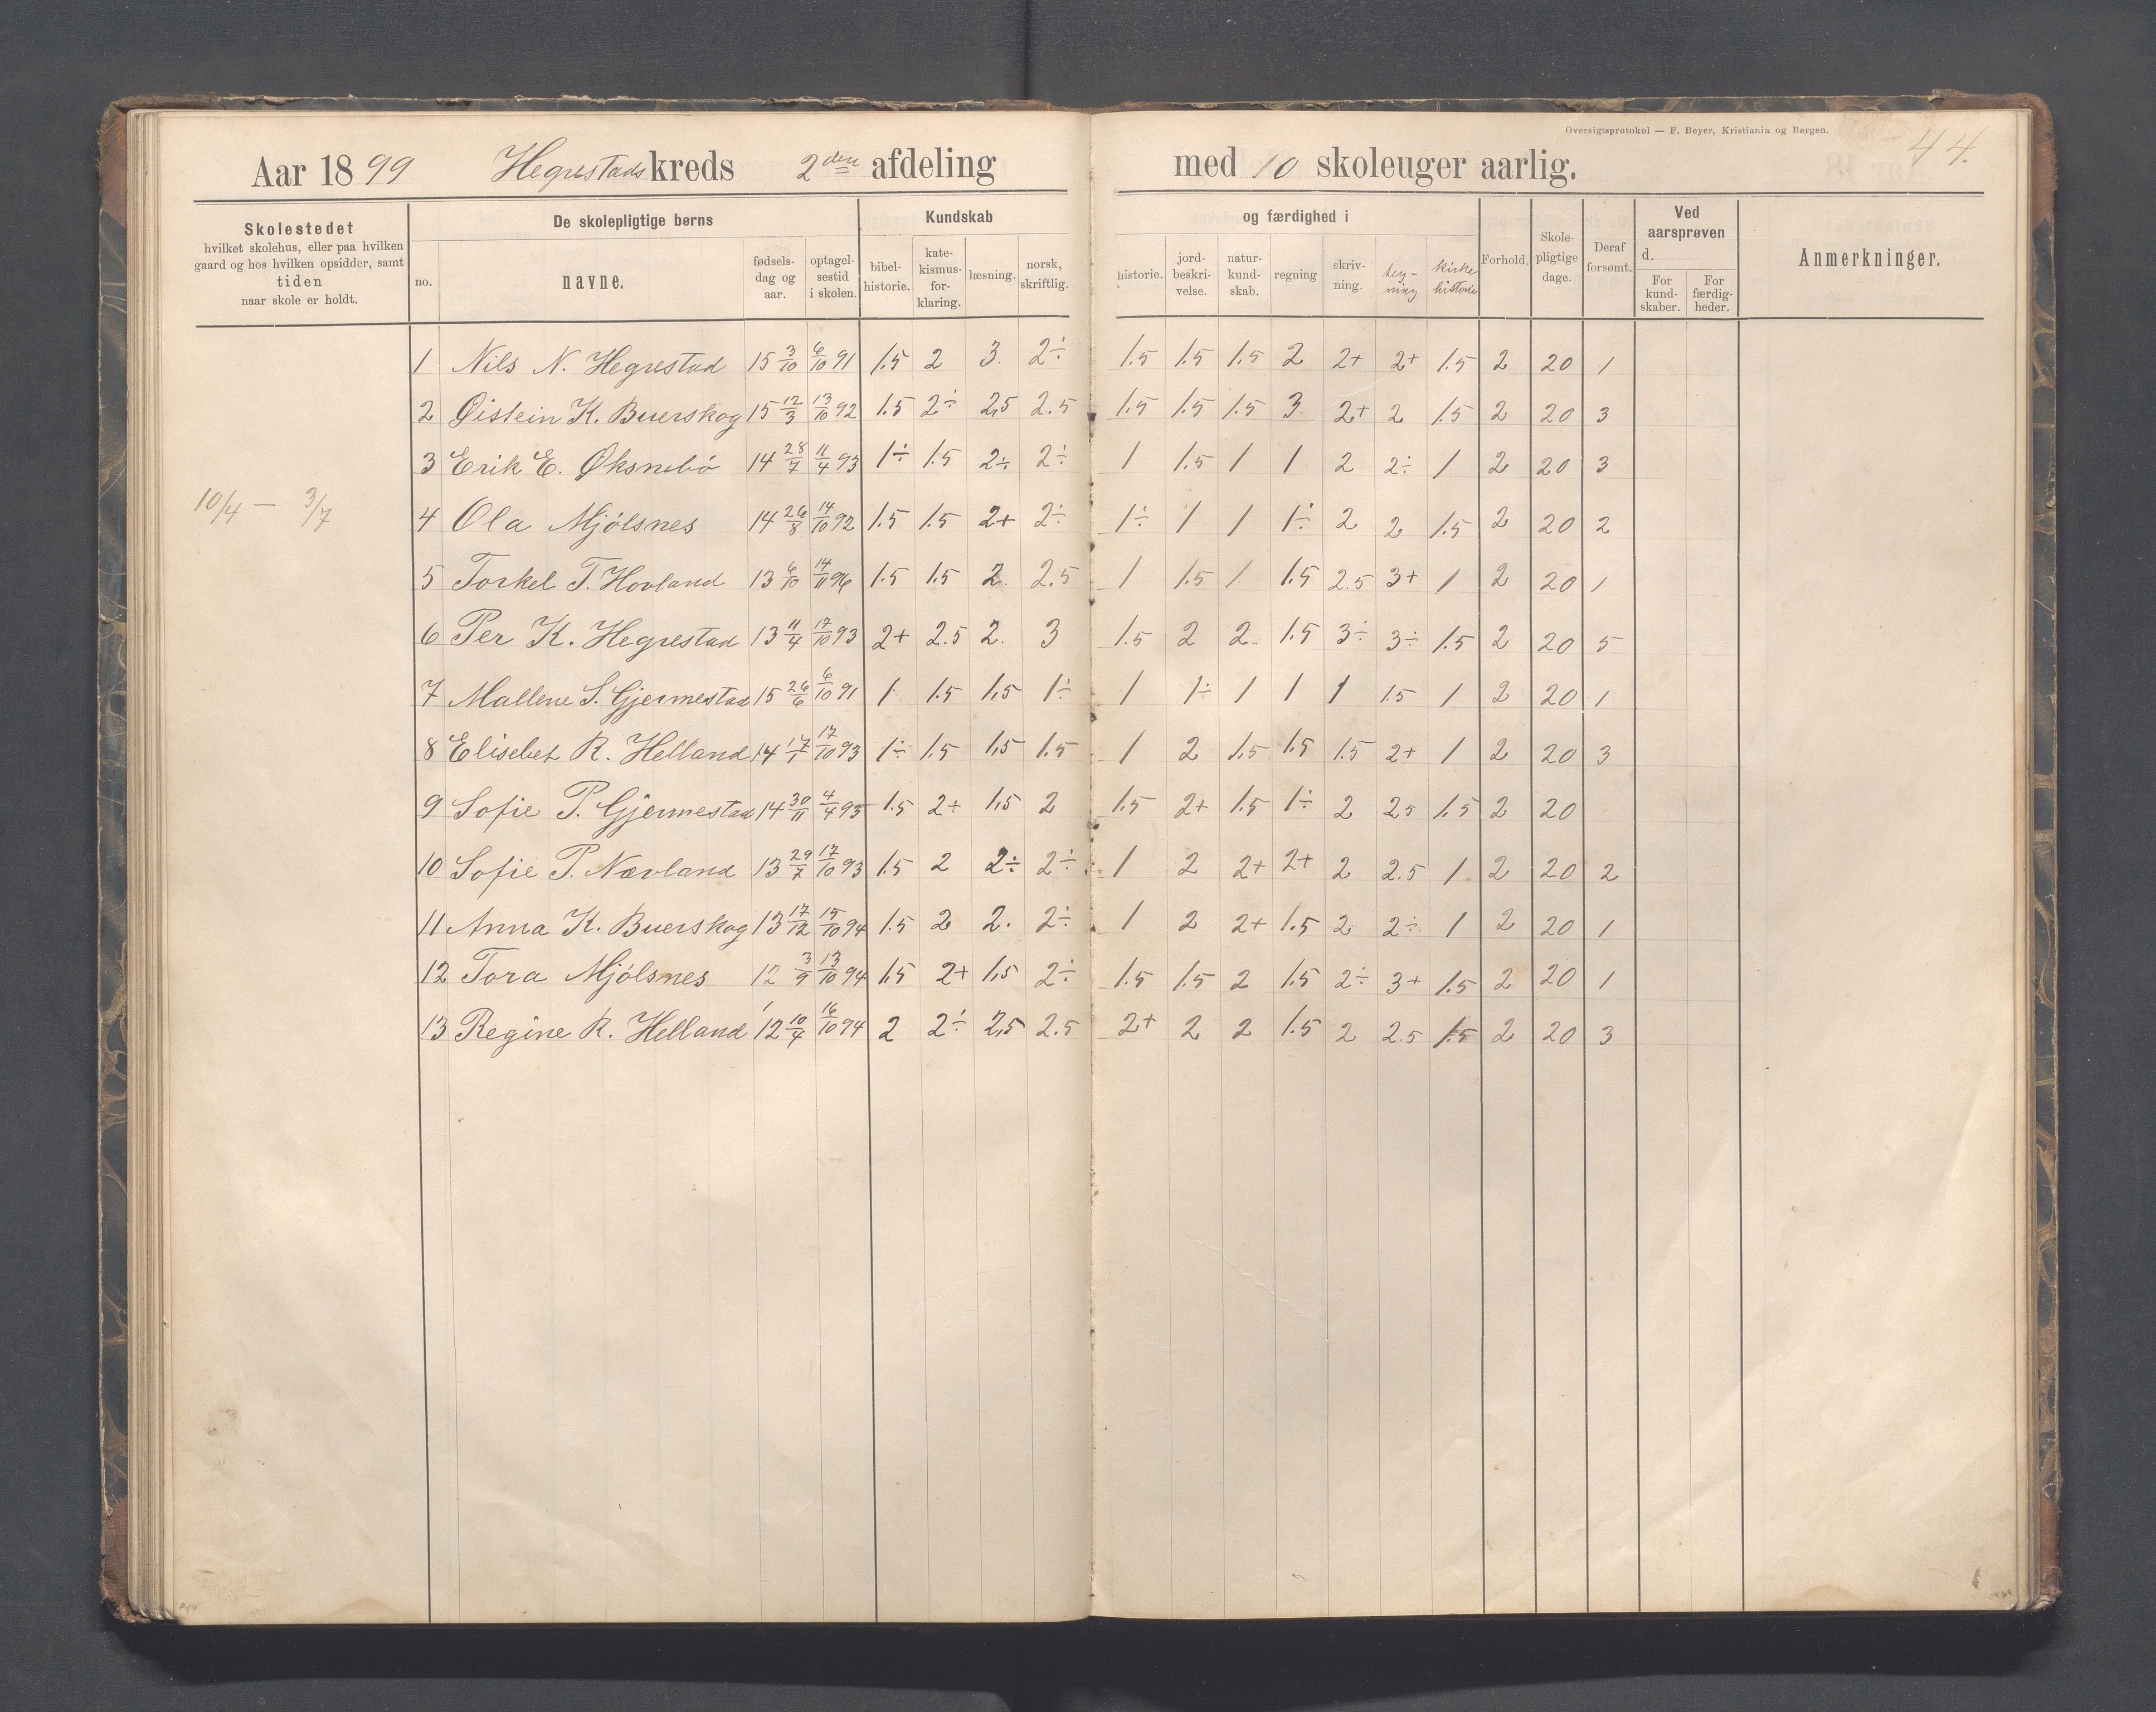 Oversigtsprotokol — F. Beyer, Kristiania og Bergen.
44.
Aar 1899 Hegrestads kreds 2den afdeling med 10 skoleuger aarlig.
Skolestedet
hvilket skolehus, eller paa hvilken
gaard og hos hvilken opsidder, samt
tiden
naar skole er holdt.
De skolepligtige børns
no.
navne.
fødsels-
dag og
aar.
optagel-
sestid
i skolen.
Kundskab
bibel-
historie.
kate-
kismus-
for-
klaring.
læsning.
norsk,
skriftlig.
og færdighed i
historie.
jord-
beskri-
velse.
natur-
kund-
skab.
regning
skriv-
ning.
teg-
ning
kirke
historie
Forhold.
Skole-
pligtige
dage.
Deraf
forsømt.
Ved
aarsprøven
d.
For
kund-
skaber.
For
færdig-
heder.
Anmerkninger.
10/4 — 3/7
1 Nils N. Hegrestad 15 3/10 6/10 91 1.5 2 3. 2÷ 1.5 1.5 1.5 2 2+ 2+ 1.5 2 20 1
2 Øistein K. Buerskog 15 12/3 13/10 92 1.5 2÷ 2,5 2.5 1.5 1.5 1.5 3 2+ 2 1.5 2 20 3
3 Erik E. Øksnebö 14 28/7 11/4 93 1÷ 1.5 2÷ 2÷ 1 1.5 1 1 2 2÷ 1 2 20 3
4 Ola Mjölsnes 14 26/8 14/10 92 1.5 1.5 2+ 2÷ 1÷ 1 1 1÷ 2 2 1.5 2 20 2
5 Torkel T. Hovland 13 6/10 14/11 96 1.5 1.5 2. 2.5 1 1.5 1. 1.5 2.5 3+ 1 2 20 1
6 Per K. Hegrestad 13 11/4 17/10 93 2+ 2.5 2. 3 1.5 2 2. 1.5 3÷ 3÷ 1.5 2 20 5
7 Mallene S. Gjermestad 15 26/6 6/10 91 1 1.5 1,5 1÷ 1 1÷ 1 1 1 1.5 1 2 20 1
8 Elisebet R. Helland 14 17/7 17/10 93 1÷ 1.5 1,5 1.5 1 2 1.5 1.5 1.5 2+ 1 2 20 3
9 Sofie P. Gjermestad 14 30/11 4/4 93 1.5 2+ 1,5 2 1.5 2+ 1.5 1÷ 2 2.5 1.5 2 20
10 Sofie P. Nævland 13 29/7 17/10 93 1.5 2 2÷ 2÷ 1 2 2+ 2+ 2 2.5 1 2 20 2
11 Anna K. Buerskog 13 17/12 15/10 94 1.5 2 2. 2÷ 1 2 2+ 1.5 2 2÷ 1 2 20 1
12 Tora Mjölsnes 12 3/9 13/10 94 1,5 2+ 1,5 2÷ 1.5 1.5 2 1.5 2÷ 3+ 1.5 2 20 1
13 Regine R. Helland 12 10/4 16/10 94 2 2÷ 2,5 2.5 2+ 2 2 1.5 2 2.5 1.5 2 20 3